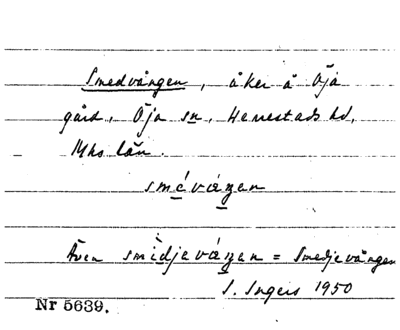 Smedvången, åker å Öja
gård, Öja sn, Herrestads hd,
Mhs län.
smévåŋen
Även smìdjevåŋen = Smedjevången
I. Ingers 1950
Nr 5639.